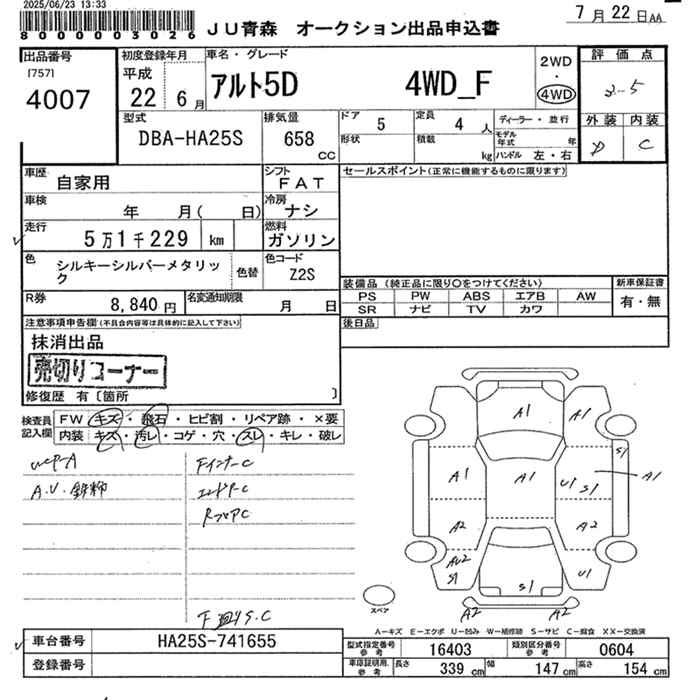 2025/06/23 13:33
8000003026
JU青森 オークション出品申込書
7月22日AA
出品番号
[757]
4007
初度登録年月
平成
22 6月
車名・グレード
アルト5D 4WD_F
2WD
・
4WD
評価点
外装 内装
D C
型式
DBA-HA25S
排気量
658
CC
ドア
5
定員
4人
形状
積載
kg
ディーラー・並行
モデル年式 年
ハンドル 左・右
車歴
自家用
シフト
FAT
車検
年 月( 日)
冷房
ナシ
走行
5万1千229 km
燃料
ガソリン
色
シルキーシルバーメタリック
色替
色コード
Z2S
R券
8,840円
名変通知期限
月 日
セールスポイント(正常に機能するものに限ります)
装備品(純正品に限り○をつけてください)
PS PW ABS エアB AW
SR ナビ TV カワ
新車保証書
有・無
後日品
注意事項申告欄(不具合内容等は具体的に記入して下さい)
抹消出品
売切りコーナー
修復歴 有〔箇所 〕
検査員記入欄
FW キズ・飛石・ヒビ割・リペア跡・×要
内装 キズ・汚レ・コゲ・穴・スレ・キレ・破レ
A.U.鉄粉
FインナーC
エンドアーC
RフロアC
F廻りS.C
A1
A1
S1
A1
A1
U1
S1
A1
A2
A2
AU2
S1
S1
U1
A2
A2
スペア
A―キズ E―エクボ U―凹み W―補修跡 S―サビ C―腐食 XX―交換済
車台番号
HA25S-741655
登録番号
型式指定番号
参考
16403
類別区分番号
参考
0604
車庫証明用.
参考
長さ 339cm 幅 147cm 高さ 154cm